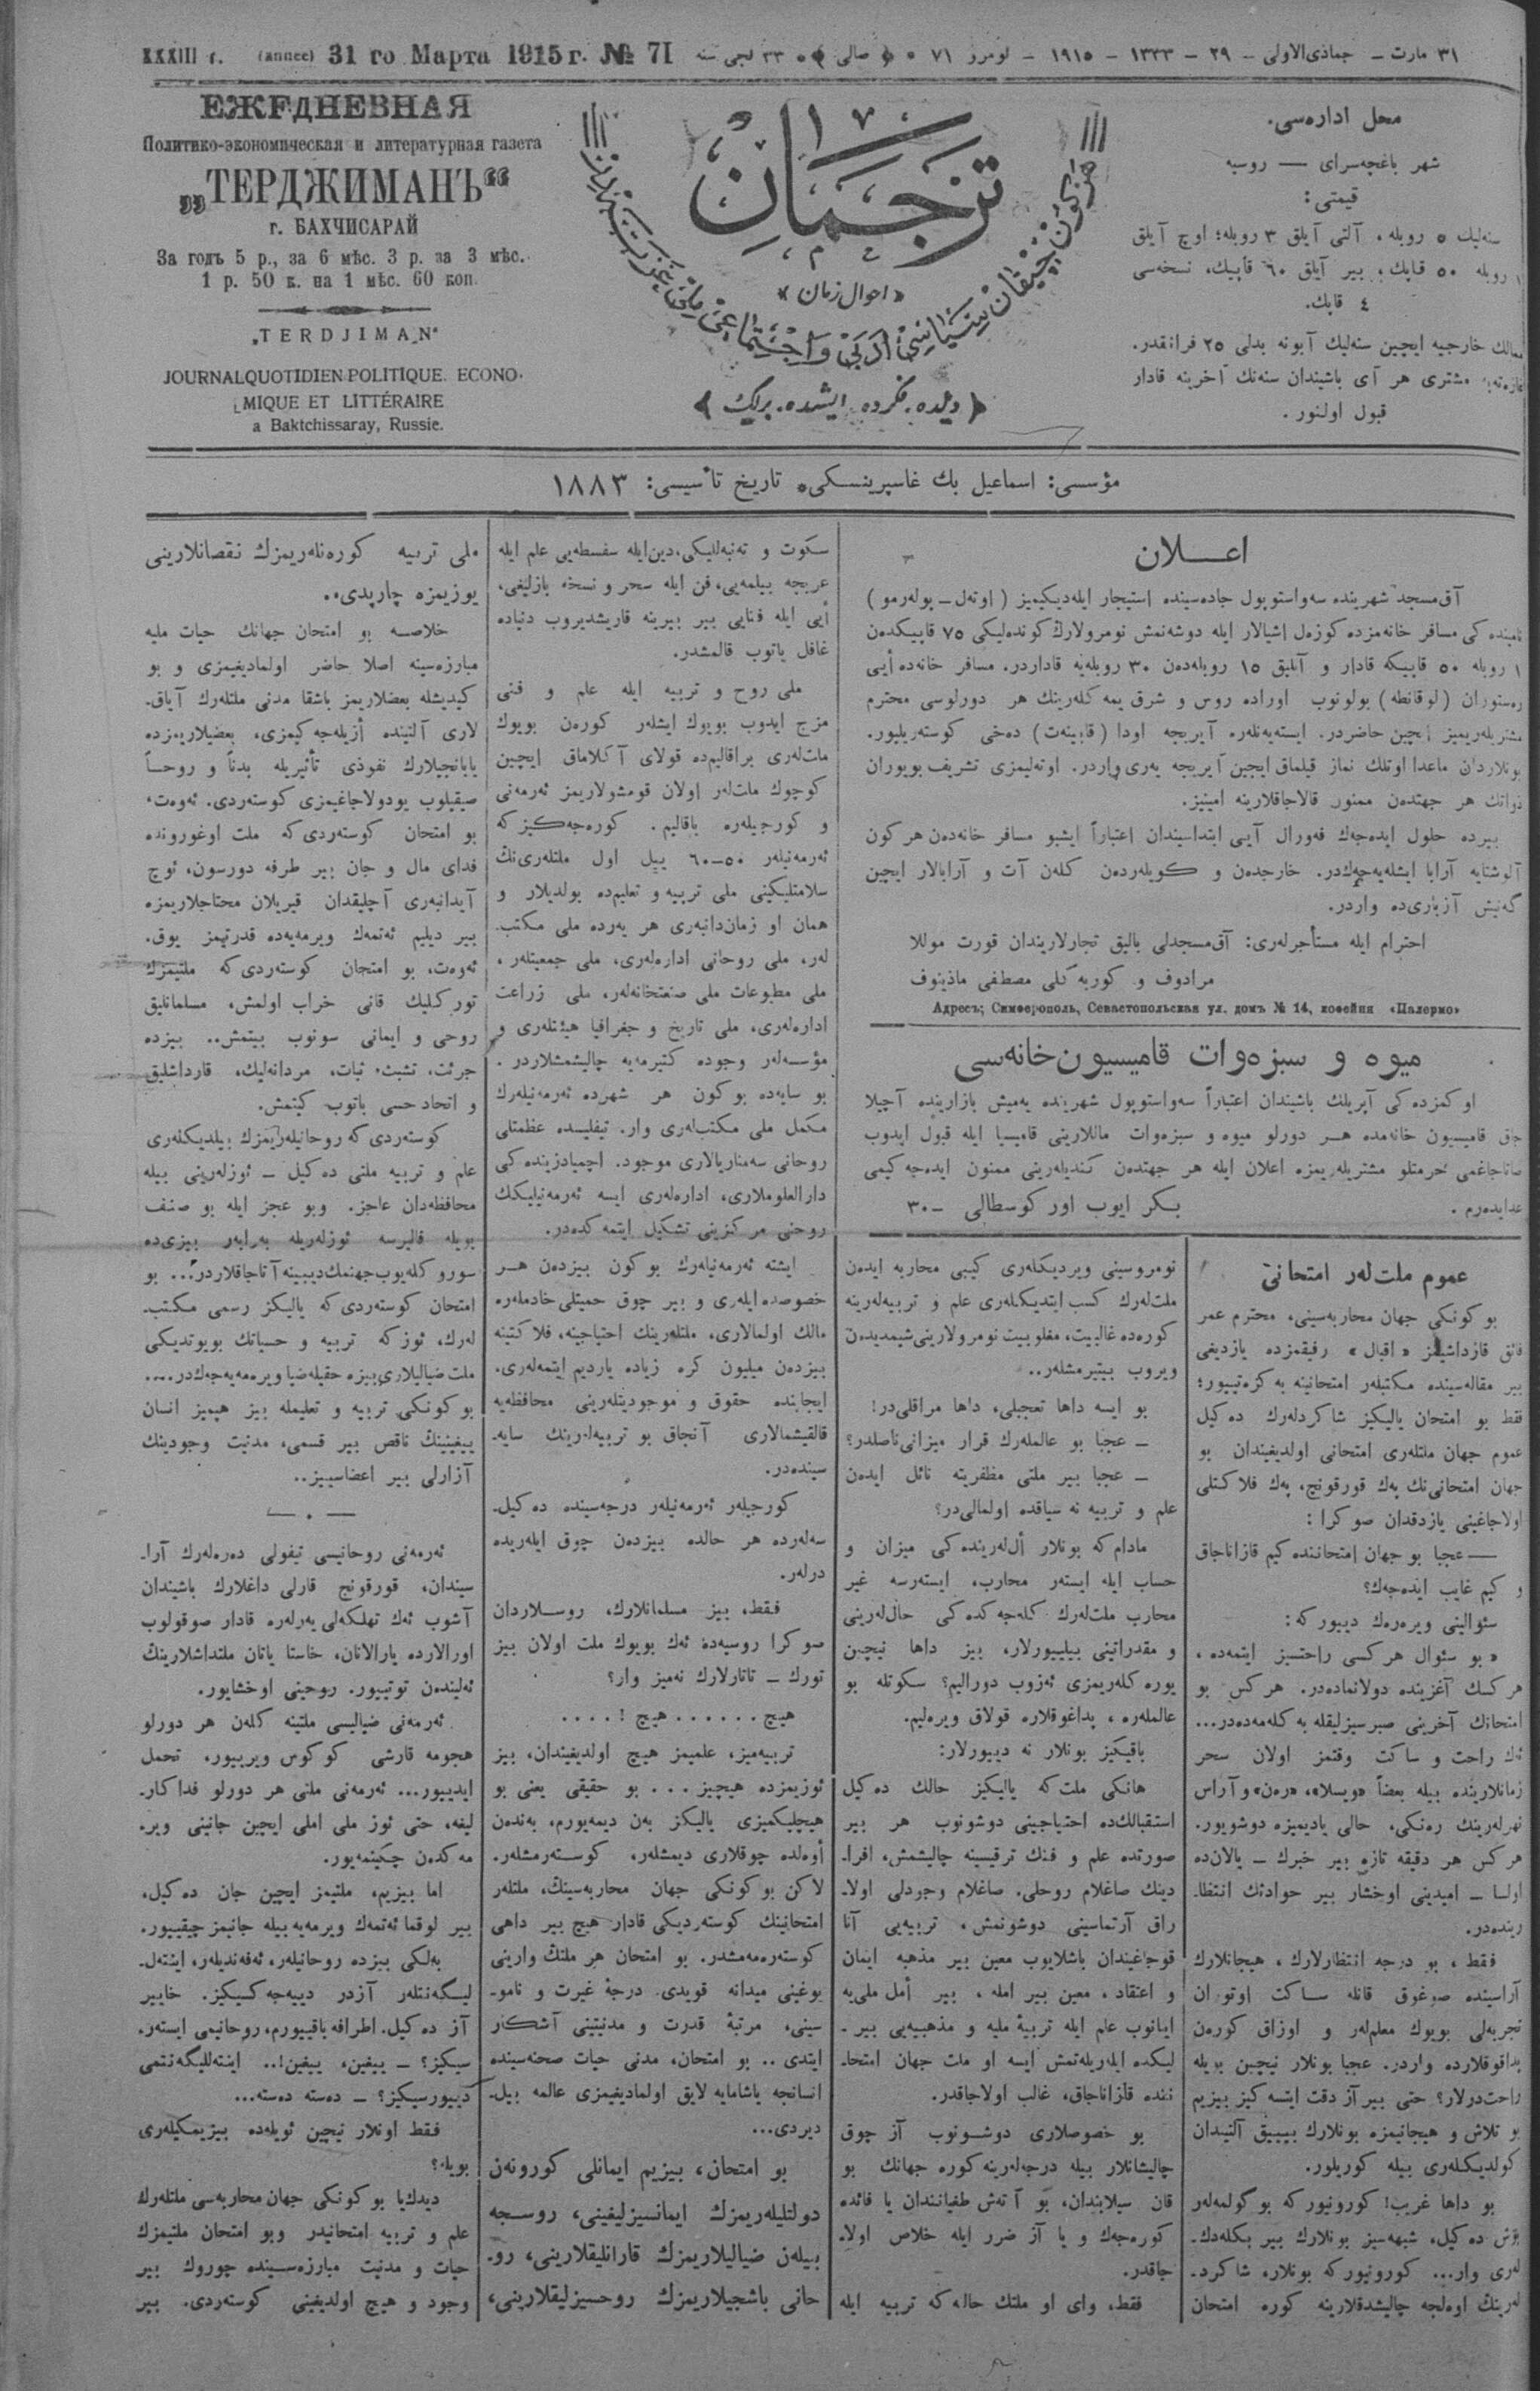 XXXIII г. (annee) 31 го Марта 1915 г. № 71
٣١ مارت ـ جماذى‌الاولى ـ ٢٩ ـ ١٣٣٣ ـ ١٩١٥ ـ نومرو ٧١ • ﴿ صالى ﴾ • ٣٣ نجى سنه
ЕЖЕДНЕВНАЯ
Политико-экономическая и литературная газета
„ТЕРДЖИМАНЪ“
г. БАХЧИСАРАЙ
За годъ 5 р., за 6 мѣс. 3 р. за 3 мѣс.
1 р. 50 к. на 1 мѣс. 60 коп.
„TERDJIMAN“
JOURNAL QUOTIDIEN POLITIQUE. ECONO-
MIQUE ET LITTÉRAIRE
a Baktchissaray, Russie.
ترجمان
«احوال زمان»
﴿ دیلده، فكرده، ایشده، برلك ﴾
محل اداره‌سى.
شهر باغچه‌سراى — روسیه
قیمتى:
سنه‌لیك ٥ روبله، آلتى آیلق ٣ روبله؛ اوچ آیلق
١ روبله ٥٠ قاپك، بیر آیلق ٦٠ قاپیك، نسخه‌سى
٤ قاپك.
ممالك خارجیه ایچین سنه‌لیك آبونه بدلى ٢٥ فرانقدر.
مشترى هر آى باشیندان سنه‌نك آخرینه قادار
قبول اولنور.
مؤسسى: اسماعیل بك غاسپرینسكى • تاریخ تأسیسى: ١٨٨٣
اعــلان
آق‌مسجد شهرینده سه‌واستوپول جاده‌سینده استیجار ایله‌دیكیمیز (اوته‌ل ـ پوله‌رمو)
نامینده كى مسافر خانه‌مزده كوزه‌ل اشیالار ایله دوشه‌نمش نومرولارڭ كونده‌لیكى ٧٥ قاپیكدەن
١ روبله ٥٠ قاپیكه قادار و آیلیق ١٥ روبله‌دەن ٣٠ روبله‌یه قاداردر. مسافر خانه‌ده أیى
رەستوران (لوقانطه) بولونوب اوراده روس و شرق یمه كله‌رینك هر دورلوسى محترم
مشتریله‌ریمیز ایچین حاضردر. ایسته‌یه‌نلەرە آیریجه اودا (قابینه‌ت) دەخى كوسته‌ریلیور.
بونلاردان ماعدا اوتلك نماز قیلماق ایچین آیریجه یەرى واردر. اوته‌لیمزى تشریف بویوران
ذواتك هر جهتدەن ممنون قالاجاقلارینه امینیز.
بیرده حلول ایده‌جه‌ك فه‌ورال آیى ابتداسیندان اعتباراً ایشبو مسافر خانه‌دەن هر كون
آلوشتایه آرابا ایشله‌یه‌جه‌كدر. خارجدەن و كویلەردەن كلەن آت و آرابالار ایچین
گەنیش آزبارى‌ده واردر.
احترام ایله مستأجرلەرى: آق‌مسجدلى بالیق تجارلاریندان قورت موللا
مرادوف و كوربه‌كلى مصطفى ماذینوف
Адресъ; Симферополь, Севастопольская ул. домъ № 14, кофейня «Палермо»
میوه و سبزەوات قامیسیون‌خانه‌سى
اوكمزده‌كى آپریلك باشیندان اعتباراً سه‌واستوپول شهرینده یه‌میش بازارینده آچیلا
جاق قامیسیون خانه‌مده هــر دورلو میوه و سبزەوات ماللارینى قامیسیا ایله قبول ایدوب
صاتاجاغمى حرمتلو مشتریله‌ریمزه اعلان ایله هر جهتدەن كندیله‌رینى ممنون ایده‌جه‌كیمى
عدایده‌رم.
بـكر ایوب اور كوسطالى ـ ٣٠
عموم ملت‌لەر امتحانى
بو كونكى جهان محاربه‌سینى، محترم عمر
فائق قارداشیمز «اقبال» رفیقمزده یازدیغى
بیر مقاله‌سینده مكتبلەر امتحانینه به‌كزه‌تییور؛
فقط بو امتحان یالیكیز شاكردلەرك ده‌كیل
عموم جهان ملتلەرى امتحانى اولدیغیندان بو
جهان امتحانى‌نك په‌ك قورقونچ، په‌ك فلاكتلى
اولاجاغینى یازدقدان صوكرا:
— عجبا بو جهان امتحاننده كیم قازاناجاق
و كیم غایب ایده‌جه‌ك؟
سئوالینى ویره‌رەك دییور كه:
«بو سئوال هر كسى راحتسیز ایتمه‌ده،
هر كسك آغزینده دولانماده‌در. هر كس بو
امتحانك آخرینى صبرسیزلیقله به‌كله‌مه‌ده‌در...
ئەك راحت و ساكت وقتمز اولان سحر
زمانلارینده بیله بعضاً «ویسلا»، «رەن» و آراس
نهرلەرینك رەنكى، حالى یادیمیزه دوشویور.
هر كس هر دقیقه تازه بیر خبرك ـ یالان‌ده
اولسا ـ امیدینى اوخشار بیر حوادثك انتظا-
رینده‌در.
فقط، بو درجه انتظارلارك، هیجانلارك
آراسینده صوغوق قانله ســاكت اوتوران
تجربه‌لى بویوك معلملەر و اوزاق كورەن
پداغوقلارده واردر. عجبا بونلار نیچین بویله
راحت‌درلار؟ حتى بیر آز دقت ایتسه‌كیز بیزیم
بو تلاش و هیجانیمزه بونلارك بیییق آلتیندان
كولدیكلەرى بیله كوریلور.
بو داها غریب! كورونیور كه بو گولمه‌لەر
بوش ده‌كیل، شبهه‌سیز بونلارك بیر بكله‌دك-
لەرى وار... كورونیور كه بونلار، شاكرد-
لەرینڭ اوەلجه چالیشدقلارینه كوره امتحان
نومروسینى ویردیكلەرى كیبى محاربه ایدەن
ملت‌لەرك كسب ایتدیكلەرى علم و تربیه‌لەرینه
كوره‌ده غالبیت، مغلوبیت نومرولارینى شیمدیدەن
ویروب بیتیرمشلەر..
بو ایسه داها تعجبلى، داها مراقلى‌در!
ـ عجبا بو عالملەرك قرار میزانى ناصلدر؟
ـ عجبا بیر ملتى مظفریته نائل ایدەن
علم و تربیه نه سیاقده اولمالى‌در؟
مادام كه بونلار أل‌لەرینده كى میزان و
حساب ایله ایستەر محارب، ایستەرسه غیر
محارب ملت‌لەرك كله‌جه‌كده كى حال‌لەرینى
و مقدراتینى بیلییورلار، بیز داها نیچین
یوره‌كلەریمزى ئەزوب دورالیم؟ سكوتله بو
عالملەره، پداغوقلاره قولاق ویره‌لیم.
باقیكیز بونلار نه دییورلار:
هانكى ملت كه یالیكیز حالك ده‌كیل
استقبالك‌ده احتیاجینى دوشونوب هر بیر
صورتده علم و فنك ترقیسینه چالیشمش، افرا-
دینك صاغلام روحلى، صاغلام وجودلى اولا-
راق آرتماسینى دوشونمش، تربیه‌یى آنا
قوجاغیندان باشلایوب معین بیر مذهبه ایمان
و اعتقاد، معین بیر امله، بیر أمل ملى‌یه
اینانوب علم ایله تربیۀ ملیه و مذهبیه‌یى بیر-
لیكده ایلەریله‌تمش ایسه او ملت جهان امتحا-
ننده قازاناجاق، غالب اولاجاقدر.
بو خصوصلارى دوشــونوب آز چوق
چالیشانلار بیله درجه‌لەرینه كوره جهانك بو
قان سیلابندان، بو آتەش طغیانندان یا فائده
كوره‌جه‌ك و یا آز ضرر ایله خلاص اولا-
جاقدر.
فقط، واى او ملتك حاله كه تربیه ایله
سكوت و تەنبه‌للیكى، دین ایله سفسطه‌یى علم ایله
عربجه بیلمه‌یى، فن ایله سحر و نسخه یازلیغى،
أیى ایله فنایى بیر بیرینه قاریشدیروب دنیاده
غافل یاتوب قالمشدر.
ملى روح و تربیه ایله علم و فنى
مزج ایدوب بویوك ایشلەر كورەن بویوك
ملت‌لەرى براقالیم‌ده قولاى آكلاماق ایچین
كوچوك ملت‌لەر اولان قومشولاریمز ئەرمەنى
و كورجیلەره باقالیم. كوره‌جه‌كیز كه
ئەرمەنیلەر ٥٠ـ٦٠ ییل اول ملتلەرى‌نڭ
سلامتلیكینى ملى تربیه و تعلیم‌ده بولدیلار و
همان او زمان‌دانبه‌رى هر یەرده ملى مكتب-
لەر، ملى روحانى اداره‌لەرى، ملى جمعیتلەر،
ملى مطبوعات ملى صنعتخانه‌لەر، ملى زراعت
اداره‌لەرى، ملى تاریخ و جغرافیا هیئتلەرى و
مؤسسه‌لەر وجوده كتیرمه‌یه چالیشمشلاردر.
بو سایه‌ده بو كون هر شهرده ئەرمەنیلەرك
مكمل ملى مكتب‌لەرى وار. تیفلیسده عظمتلى
روحانى سەمناریالارى موجود. اچمیادزینده كى
دارالعلوملارى، اداره‌لەرى ایسه ئەرمەنیلیكك
روحنى مركزینى تشكیل ایتمه كده‌در.
ایشته ئەرمەنیلەرك بو كون بیزدەن هــر
خصوصده ایلەرى و بیر چوق حمیتلى خادملەره
مالك اولمالارى، ملتلەرینك احتیاجینه، فلاكتینه
بیزدەن میلیون كره زیاده یاردیم ایتمه‌لەرى،
ایجابنده حقوق و موجودیتلەرینى محافظه‌یه
قالقیشمالارى آنجاق بو تربیه‌لەرینك سایه-
سینده‌در.
كورجیلەر ئەرمەنیلەر درجه‌سینده ده‌كیل-
سه‌لەرده هر حالده بیزدەن چوق ایلەریده
درلەر.
فقط، بیز مسلمانلارك، روســلاردان
صوكرا روسیه‌ده ئەك بویوك ملت اولان بیز
تورك ـ تاتارلارك نه‌میز وار؟
هیچ...... هیچ!....
تربیه‌میز، علمیمز هیچ اولدیغیندان، بیز
ئوزیمزده هیچیز... بو حقیقى یعنى بو
هیچلیكمیزى یالیكز بەن دیمه‌یورم، بەندەن
أوەلده چوقلارى دیمشلەر، كوســته‌رمشلەر.
لاكن بو كونكى جهان محاربه‌سینڭ، ملتلەر
امتحانینك كوسته‌ردیكى قادار هیچ بیر داهى
كوسته‌ره‌مه‌مشدر. بو امتحان هر ملتڭ وارینى
یوغینى میدانه قویدى. درجۀ غیرت و نامو-
سینى، مرتبۀ قدرت و مدنیتینى آشكار
ایتدى.. بو امتحان، مدنى حیات صحنه‌سینده
انسانجه یاشامایه لایق اولمادیغیمزى عالمه بیل-
دیردى...
بو امتحان، بیزیم ایمانلى كورونەن
دولتلیلەریمزك ایمانسیزلیغینى، روســجه
بیلەن ضیالیلاریمزك قارانلیقلارینى، رو-
حانى باشجیلاریمزك روحسیزلیقلارینى،
ملى تربیه كوره‌نلەریمزك نقصانلارینى
یوزیمزه چارپدى..
خلاصــه بو امتحان جهانك حیات ملیه
مبارزه‌سینه اصلا حاضر اولمادیغیمزى و بو
كیدیشله بعضلاریمز باشقا مدنى ملتلەرك آیاق-
لارى آلتینده أزیله‌جه‌كیمزى، بعضیلاریمزده
یابانجیلارك نفوذى تأثیریله بدناً و روحــاً
صیقیلوب یودولاجاغیمزى كوسته‌ردى. ئه‌وەت،
بو امتحان كوسته‌ردى كه ملت اوغورونده
فداى مال و جان بیر طرفه دورسون، ئوچ
آیدانبه‌رى آچلیقدان قیریلان محتاجلاریمزه
بیر دیلیم ئەتمەك ویرمه‌یه‌ده قدرتیمز یوق.
ئه‌وەت، بو امتحان كوسته‌ردى كه ملتیمزك
توركلیك قانى خراب اولمش، مسلمانلیق
روحى و ایمانى سونوب بیتمش.. بیزده
جرئت، تشبث، ثبات، مردانه‌لیك، قارداشلیق
و اتحاد حسى باتوب كیتمش.
كوسته‌ردى كه روحانیلەریمزك بیلدیكلەرى
علم و تربیه ملتى ده‌كیل ـ ئوزلەرینى بیله
محافظه‌دان عاجز. وبو عجز ایله بو صنف
بویله قالیرسه ئوزلەریله بەرابەر بیزى‌ده
سورو كله‌یوب جهنمك دیبینه آتاجاقلاردر... بو
امتحان كوسته‌ردى كه یالیكز رسمى مكتب-
لەرك، ئوزكه تربیه و حسیاتك بویوتدیكى
ملت ضیالیلارى بیزه حقیله ضیا ویره‌مه‌یه‌جه‌كدر....
بو كونكى تربیه و تعلیمله بیز هپمیز انسان
ییغینینڭ ناقص بیر قسمى، مدنیت وجودینك
آزارلى بیر اعضاسییز..
— • —
ئەرمەنى روحانیسى تیفولى دەره‌لەرك آرا-
سیندان، قورقونچ قارلى داغلارك باشیندان
آشوب ئەك تهلكه‌لى یەرلەره قادار صوقولوب
اورالارده یارالانان، خاستا یاتان ملتداشلارینڭ
ئه‌لیندەن توتییور. روحینى اوخشایور.
ئەرمەنى ضیالیسى ملتینه كلەن هر دورلو
هجومه قارشى كوكوس ویرییور، تحمل
ایدییور... ئەرمەنى ملتى هر دورلو فداكار-
لیغه، حتى ئوز ملى املى ایچین جانینى ویر-
مه كدەن چكینمه‌یور.
اما بیزیم، ملتیمز ایچین جان ده‌كیل،
بیر لوقما ئەتمەك ویرمه‌یه بیله جانیمز چیقییور.
به‌لكى بیزده روحانیلەر، ئەفەندیلەر، اینتەل-
لیگەنتلەر آزدر دییه‌جه كسیكیز. خایـیر
آز ده‌كیل. اطرافه باقییورم، روحانیمى ایستەر-
سیكیز؟ ـ ییغین، ییغین!.. اینته‌للیگه‌نتمى
دییورسیكیز؟ ـ دەسته دەسته...
فقط اونلار نیچین ئویله‌ده بیزیمكیلەرى
بویله؟
دیدك‌یا بو كونكى جهان محاربه‌سى ملتلەرك
علم و تربیه امتحانیدر وبو امتحان ملتیمزك
حیات و مدنیت مبارزه‌ســینده چوروك بیر
وجود و هیچ اولدیغینى كوسته‌ردى. بیر